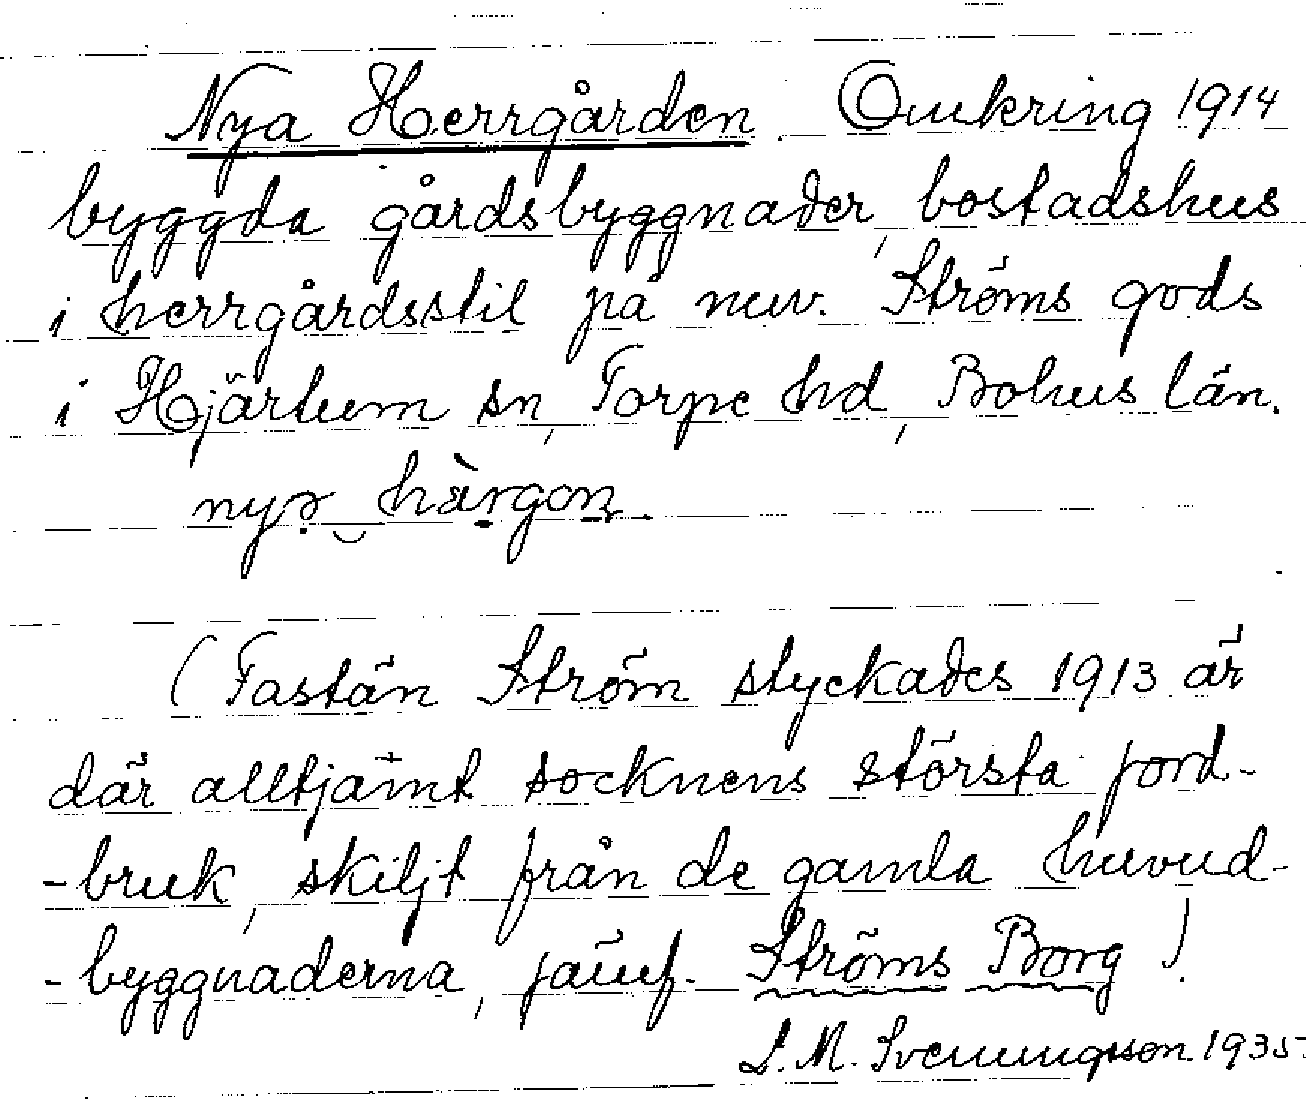 Nya Herrgården. Omkring 1914
byggda gårdsbyggnader, bostadshus
i herrgårdsstil på nuv. Ströms gods
i Hjärtum sn, Torpe hd, Bohus län.
nyа hàrgon.
(Fastän Ström styckades 1913 är
där alltjämt socknens största jord-
-bruk, skiljt från de gamla huvud-
-byggnaderna, jämf. Ströms Borg).
S. M. Svenungsson 1935.